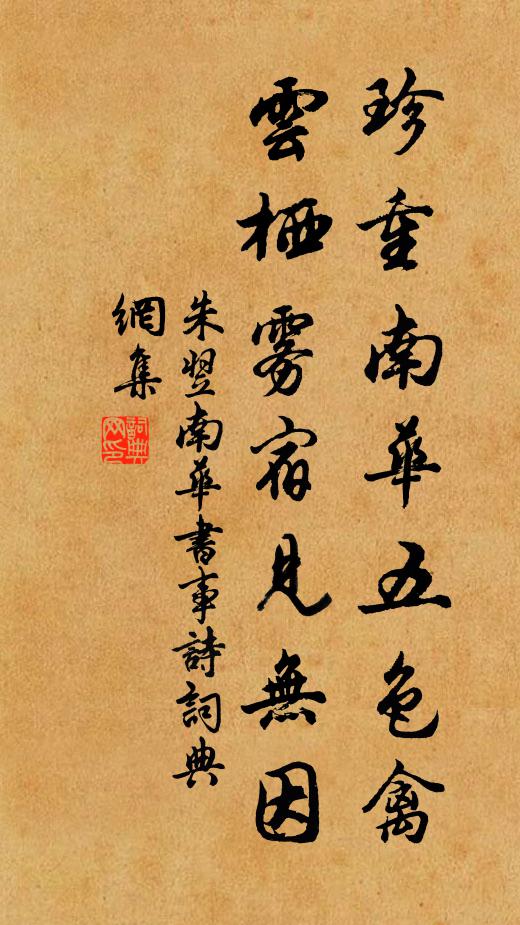 珍重南華五色禽
雲栖霧宿見無因
朱翌南華書事詩詞典
網集
詞典網印